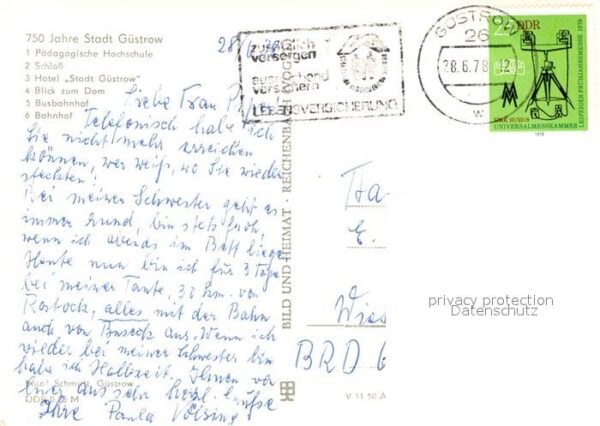 750 Jahre Stadt Güstrow
1 Pädagogische Hochschule
2 Schloß
3 Hotel „Stadt Güstrow"
4 Blick zum Dom
5 Busbahnhof
6 Bahnhof
28/6. 78
Liebe Frau
Telefonisch habe ich
Sie nicht mehr erreichen
können, wer weiß, wo Sie wieder
stecken!
Bei meiner Schwester geht es
immer rund, bin stets froh,
wenn ich abends im Bett liege.
Heute nun bin ich für 3 Tage
bei meiner Tante, 30 km. von
Rostock, alles mit der Bahn
auch von aus. Wenn ich
wieder bei meiner Schwester bin
habe ich Halbzeit. Ihnen von
hier aus sehr herzl. Grüße
Ihre Paula
Foto: Schmidt, Güstrow
DDR 0,25 M
BILD UND HEIMAT · REICHENBACH (VOGTL)
V 11 50 A
zusätzlich
vorsorgen
ausreichend
versichern
LEBENSVERSICHERUNG
GÜSTROW
26
28.6.78-12
w
25 DDR
LEIPZIGER FRÜHJAHRSMESSE 1978
UMK 10/1318
UNIVERSALMESSKAMMER
1978
Fra
E.
Wies
BRD 6
privacy protection
Datenschutz